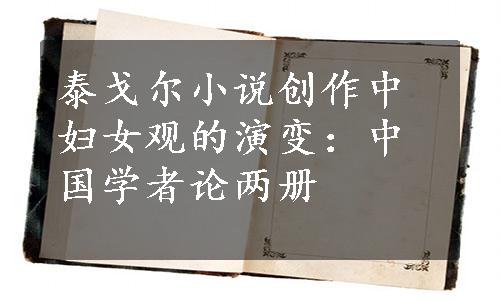 泰戈尔小说创作中
妇女观的演变：中
国学者论两册